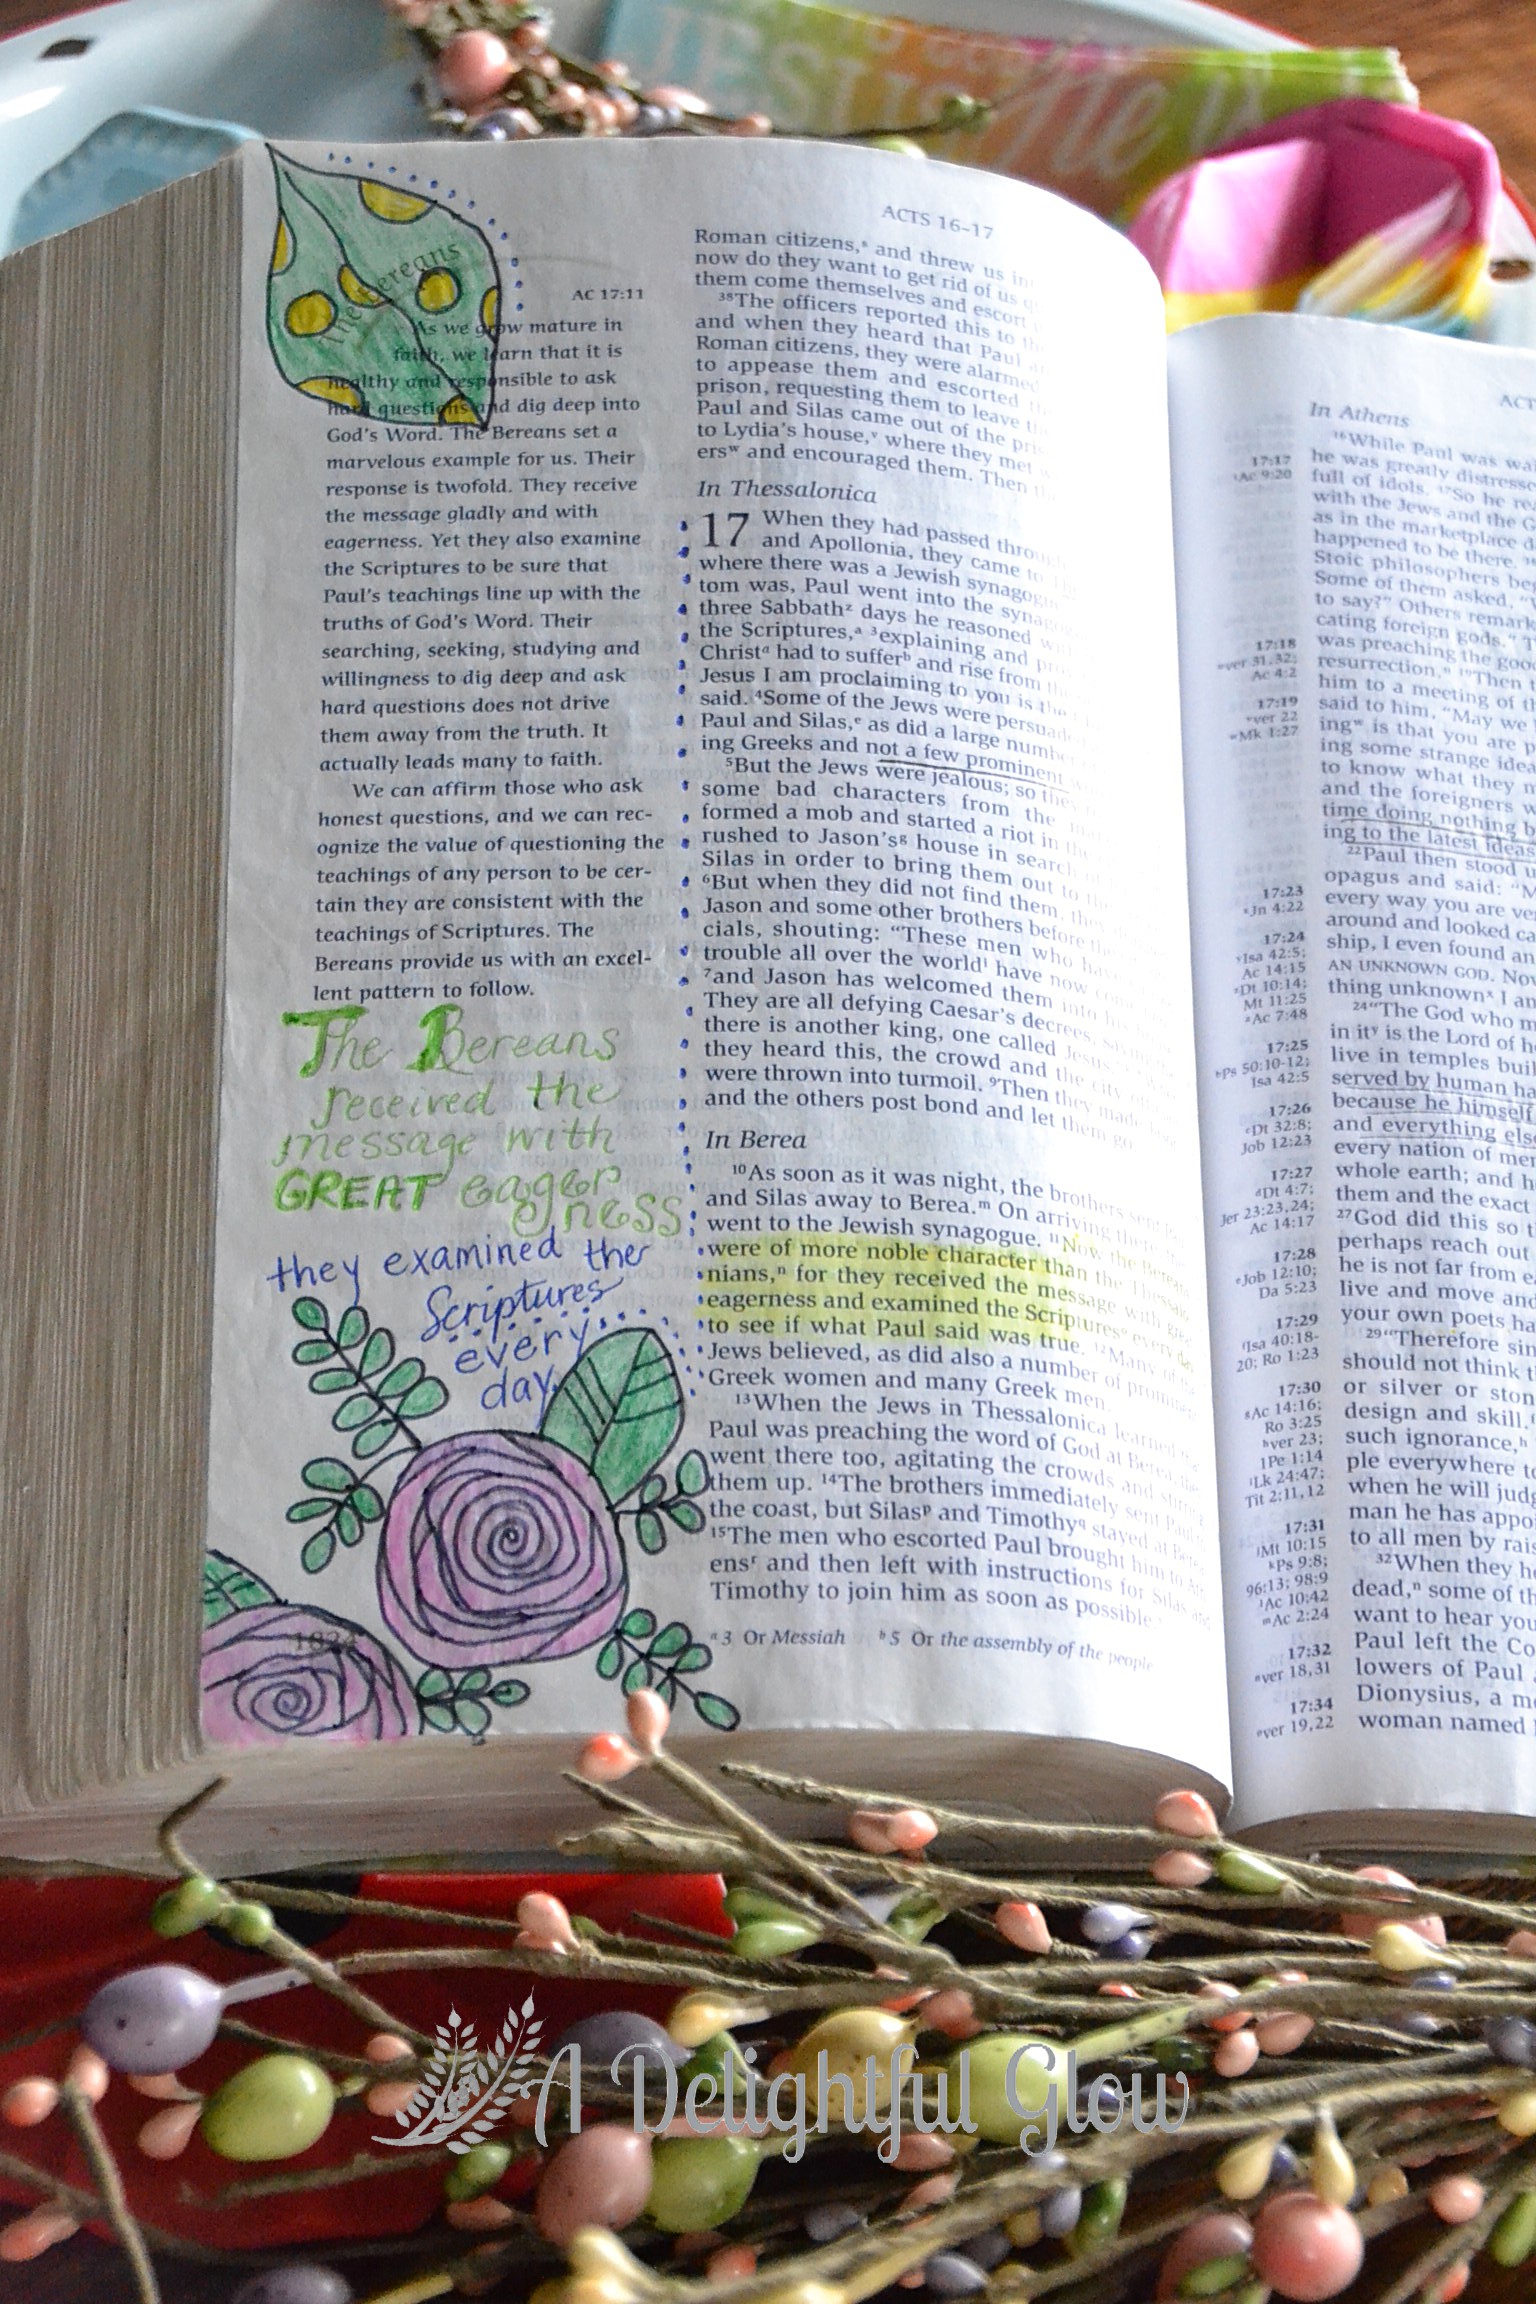 JESUS
ACTS 16–17
The Bereans
AC 17:11
As we grow mature in
faith, we learn that it is
healthy and responsible to ask
hard questions and dig deep into
God's Word. The Bereans set a
marvelous example for us. Their
response is twofold. They receive
the message gladly and with
eagerness. Yet they also examine
the Scriptures to be sure that
Paul's teachings line up with the
truths of God's Word. Their
searching, seeking, studying and
willingness to dig deep and ask
hard questions does not drive
them away from the truth. It
actually leads many to faith.
We can affirm those who ask
honest questions, and we can rec-
ognize the value of questioning the
teachings of any person to be cer-
tain they are consistent with the
teachings of Scriptures. The
Bereans provide us with an excel-
lent pattern to follow.
The Bereans
received the
message with
GREAT eager
ness
they examined the
Scriptures
every
day
Roman citizens, and threw us
now do they want to get rid of us
them come themselves and escort
38The officers reported this to
and when they heard that Paul
Roman citizens, they were alarmed
to appease them and escorted
prison, requesting them to leave
Paul and Silas came out of the
to Lydia's house,v where they met
ersw and encouraged them. Then
In Thessalonica
17 When they had passed
and Apollonia, they came
where there was a Jewish
tom was, Paul went into the
three Sabbathz days he reasoned
the Scriptures,a 3explaining and
Christa had to sufferb and rise from
Jesus I am proclaiming to you is the
said. 4Some of the Jews were
Paul and Silas,e as did a large
ing Greeks and not a few prominent
5But the Jews were jealous; so they
some bad characters from the
formed a mob and started a riot in the
rushed to Jason'sg house in search
Silas in order to bring them out to
6But when they did not find them, they
Jason and some other brothers before
cials, shouting: "These men who have
trouble all over the world have now
7and Jason has welcomed them into his
They are all defying Caesar's decrees, saying
there is another king, one called Jesus.
they heard this, the crowd and the city
were thrown into turmoil. 9Then they made
and the others post bond and let them go
In Berea
10As soon as it was night, the brothers sent
and Silas away to Berea.m On arriving there,
went to the Jewish synagogue. 11Now the Bereans
were of more noble character than the Thessalo
nians,n for they received the message with great
eagerness and examined the Scriptures every day
to see if what Paul said was true. 12Many of
Jews believed, as did also a number of prominent
Greek women and many Greek men.
13When the Jews in Thessalonica learned
Paul was preaching the word of God at Berea, they
went there too, agitating the crowds and stirring
them up. 14The brothers immediately sent Paul
the coast, but Silasp and Timothyq stayed at Berea.
15The men who escorted Paul brought him to Ath
ensr and then left with instructions for Silas and
Timothy to join him as soon as possible
a3 Or Messiah b5 Or the assembly of the people
In Athens
16While Paul was
he was greatly
full of idols. 17So he
with the Jews and the
as in the marketplace
happened to be there.
Stoic philosophers
Some of them asked,
to say?" Others
cating foreign gods."
was preaching the
resurrection. 19Then
him to a meeting of
said to him, "May we
ingw is that you are
ing some strange
to know what they
and the foreigners
time doing nothing
ing to the latest ideas
22Paul then stood
opagus and said:
every way you are
around and looked
ship, I even found an
AN UNKNOWN GOD.
thing unknownx I
24"The God who
in ity is the Lord of
live in temples
served by human
because he himself
and everything else
every nation of
whole earth; and
them and the exact
27God did this so
perhaps reach out
he is not far from
live and move and
your own poets
29"Therefore
should not think
or silver or
design and skill.
such ignorance,h
ple everywhere to
when he will
man he has
to all men by
32When they
dead,n some of
want to hear
Paul left the
lowers of Paul
Dionysius, a
woman named
17:17
Ac 9:20
17:18
ver 31,32;
Ac 4:2
17:19
ver 22
Mk 1:27
17:23
Jn 4:22
17:24
Isa 42:5;
Ac 14:15
Dt 10:14;
Mt 11:25
Ac 7:48
17:25
Ps 50:10-12;
Isa 42:5
17:26
Dt 32:8;
Job 12:23
17:27
Dt 4:7;
Jer 23:23,24;
Ac 14:17
17:28
Job 12:10;
Da 5:23
17:29
Isa 40:18-
20; Ro 1:23
17:30
Ac 14:16;
Ro 3:25
ver 23;
1Pe 1:14
Lk 24:47;
Tit 2:11,12
17:31
Mt 10:15
Ps 9:8;
96:13; 98:9
Ac 10:42
Ac 2:24
17:32
ver 18,31
17:34
ver 19,22
A Delightful Glow